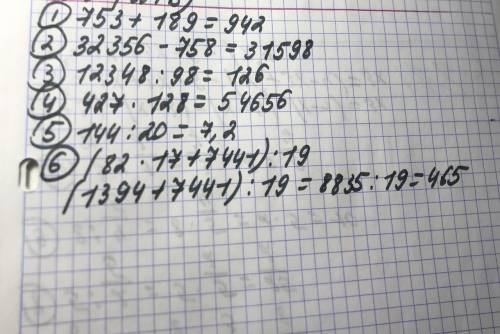 1 753 + 189 = 942
2 32356 - 758 = 31598
3 12348 : 98 = 126
4 427 · 128 = 54656
5 144 : 20 = 7,2
6 (82 · 17 + 7441) : 19
(1394 + 7441) : 19 = 8835 : 19 = 465